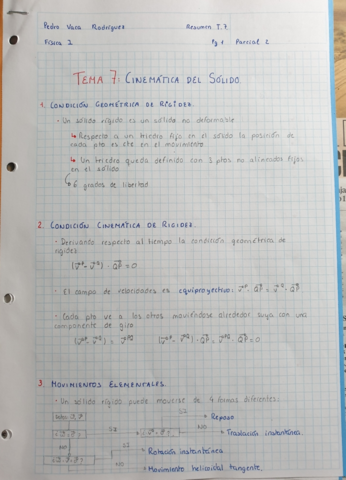 Pedro Vara Rodríguez Resumen T.7
Física I Pg 1 Parcial 2
TEMA 7: CINEMÁTICA DEL SÓLIDO.
1. CONDICIÓN GEOMÉTRICA DE RIGIDEZ.
• Un sólido rígido es un sólido no deformable
↳ Respecto a un triedro fijo en el sólido la posición de
cada pto es cte en el movimiento
↳ Un triedro queda definido con 3 ptos no alineados fijos
en el sólido
↳ 6 grados de libertad.
2. CONDICIÓN CINEMÁTICA DE RIGIDEZ.
• Derivando respecto al tiempo la condición geométrica de
rigidez
(v⃗ᴾ - v⃗Q) · QP⃗ = 0
• El campo de velocidades es equiproyectivo: v⃗ᴾ · QP⃗ = v⃗Q · QP⃗
• Cada pto ve a los otros moviéndose alrededor suya con una
componente de giro
(v⃗ᴾ - v⃗Q) = v⃗ᴾQ (v⃗ᴾ - v⃗Q) · QP⃗ = v⃗ᴾQ · QP⃗ = 0
3. MOVIMIENTOS ELEMENTALES.
• Un sólido rígido puede moverse de 4 formas diferentes.
SI • Reposo
NO • Traslación instantánea
NO SI • Rotación instantánea
• Movimiento helicoidal tangente.